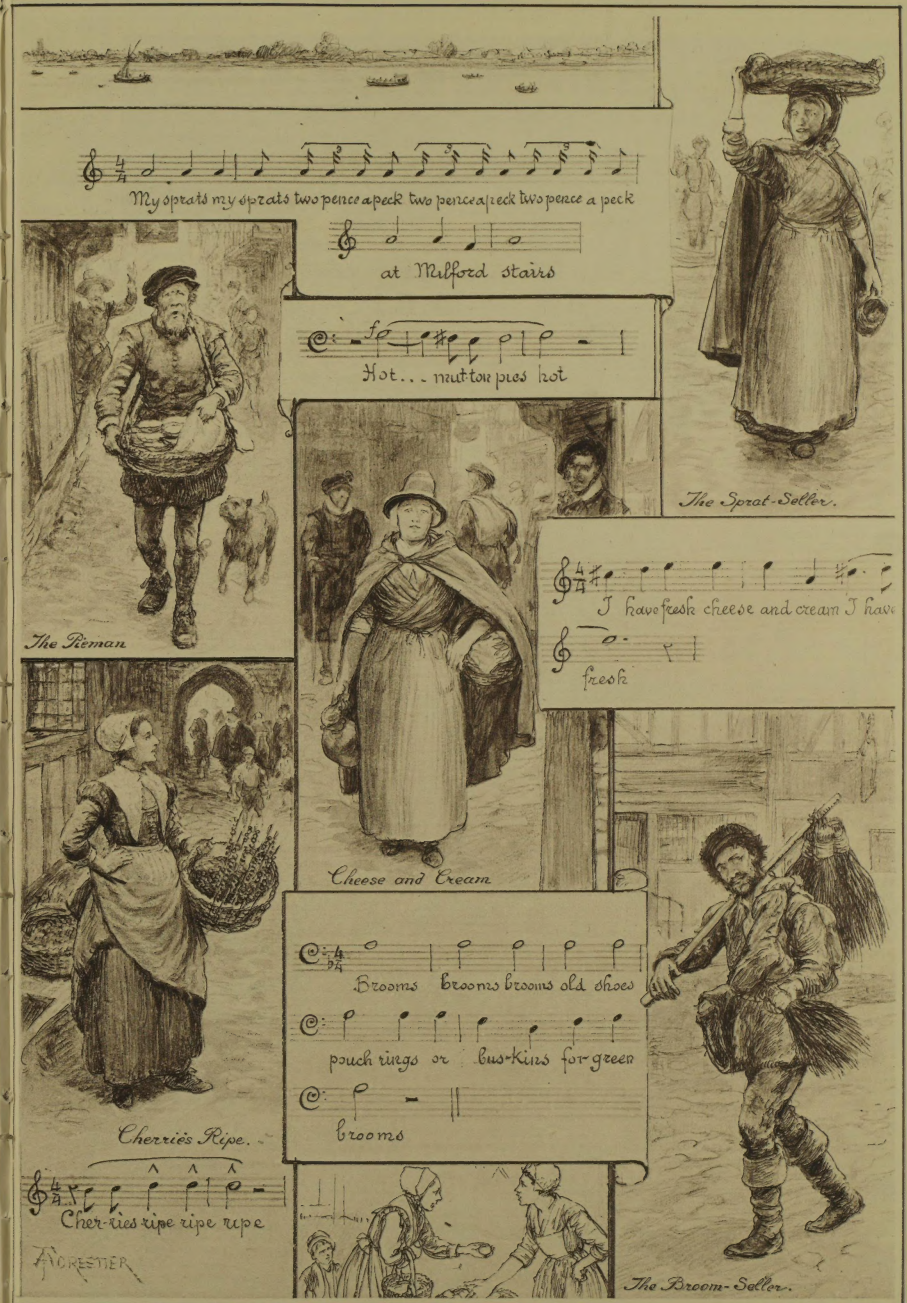 My sprats my sprats two pence a peck two pence a peck two pence a peck
at Milford stairs
Hot... mutton pies hot
The Sprat-Seller.
I have fresh cheese and cream I have
fresh
The Pieman
Cheese and Cream
Brooms brooms brooms old shoes
pouch rings or bus-kins for green
brooms
Cherries Ripe.
Cher-ries ripe ripe ripe
A FORESTIER
The Broom-Seller.